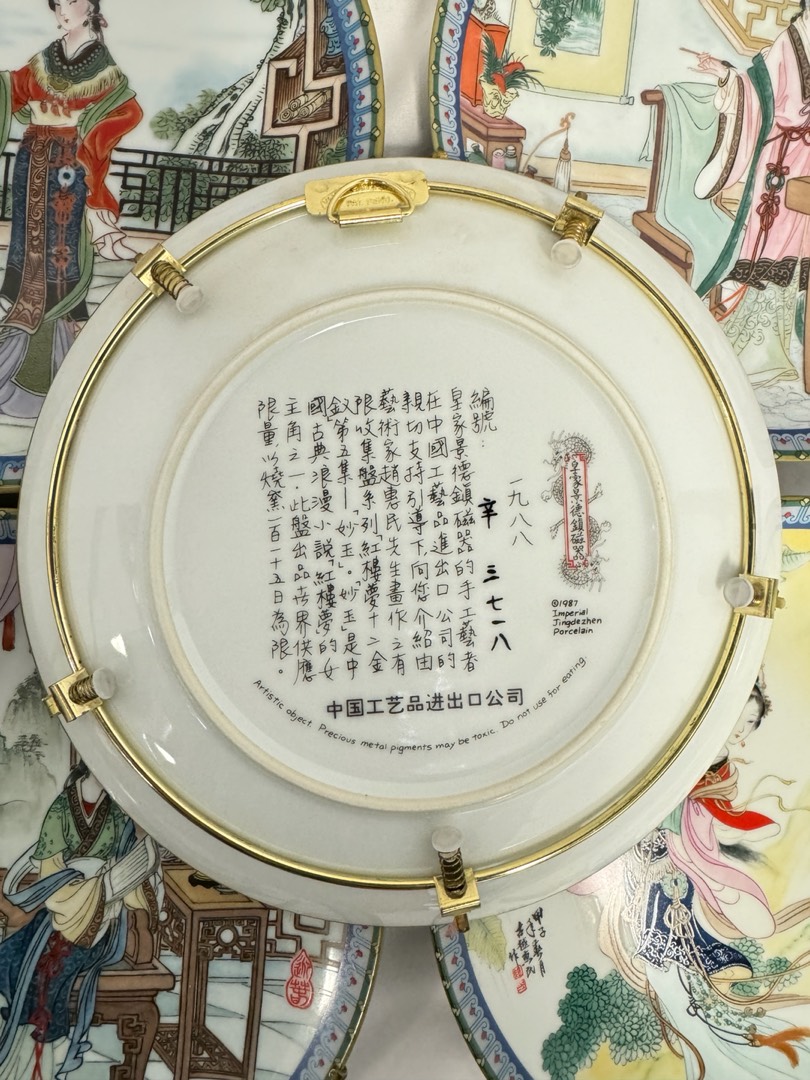 皇家景德鎮磁器
©1987
Imperial
Jingdezhen
Porcelain
一九八八
編號:
辛 三七一八
皇家景德鎮磁器的手工藝者
在中國工藝品進出口公司的
親切支持引導下向您介紹由
藝術家趙惠民先生畫作之有
限收集盤系列「紅樓夢十二金
釵」第五集—「妙玉」。妙玉是中
國古典浪漫小說「紅樓夢」的女
主角之一.此盤出品世界供應
限量以燒窯一百一十五日為限。
中国工艺品进出口公司
Artistic object. Precious metal pigments may be toxic. Do not use for eating.
甲子